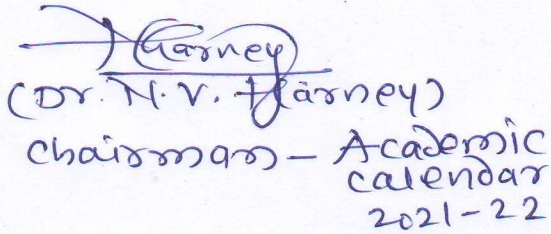 Harney
(Dr. N.V. Harney)
Chairman - Academic
calendar
2021-22